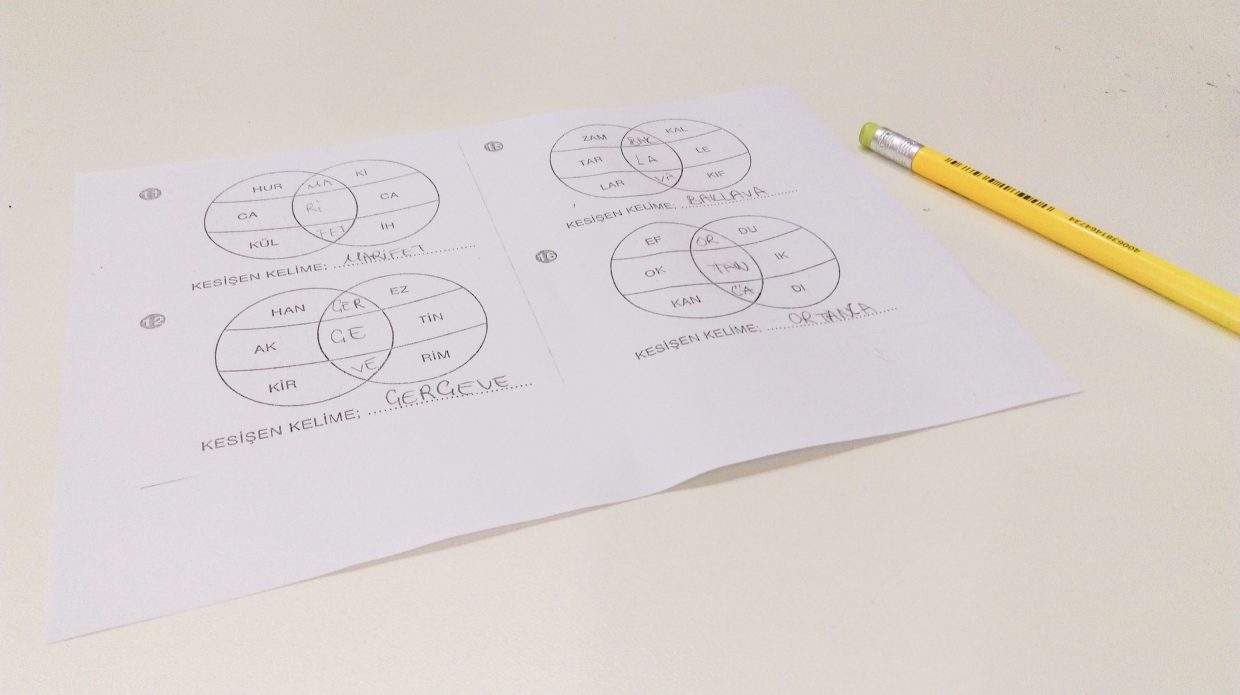 11
HUR MA Kİ
CA Rİ CA
KÜL FET İH
KESİŞEN KELİME; MARİFET
12
HAN GER EZ
AK GE TİN
KİR VE RİM
KESİŞEN KELİME; GERGEVE
15
ZAM BAK KAL
TAR LA LE
LAR VA KIF
KESİŞEN KELİME; BAKLAVA
16
EF OR DU
OK TAN IK
KAN CA DI
KESİŞEN KELİME; ORTANCA
4006381464734